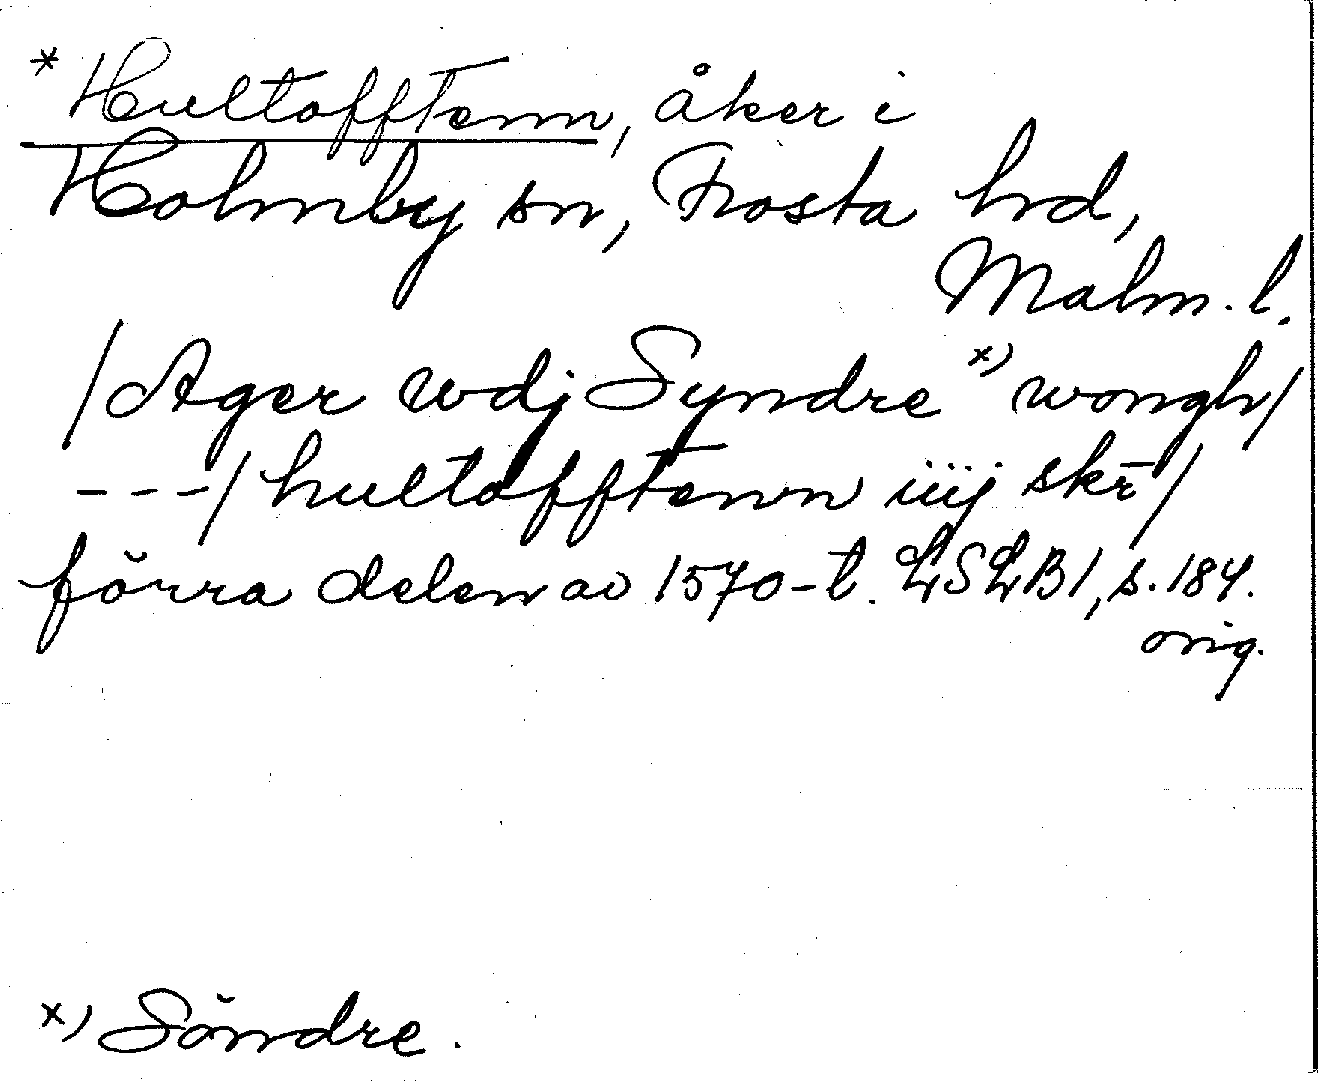 * Hultofftenn, åker i
Holmby sn, Frosta hrd,
Malm. l.
/Ager wdj Syndre x) wongh/
---/hultofftenn iiij skr̄/
förra delen av 1570-t. LSLB1, s. 184.
orig.
x) Söndre.